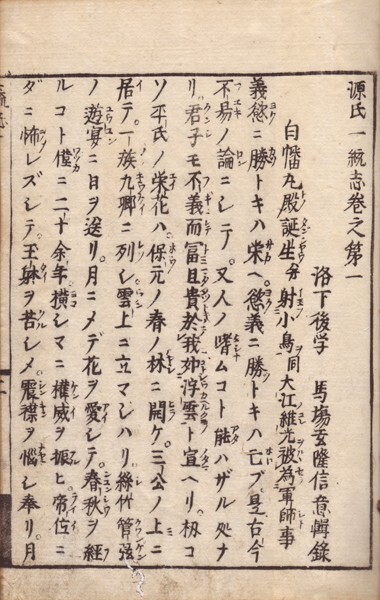 源氏一統志巻之第一
洛下後学 馬場玄隆信意輯録
白幡丸殿誕生分射小鳥同大江維光被為軍師事
義慾ニ勝トキハ栄ヘ慾義ニ勝トキハ亡ブ是古今
不易ノ論ニシテ。又人ノ嗜ムコト能ハザル処ナ
リ君子モ不義而富且貴於我如浮雲ト宣ヘリ。扨コ
ソ平氏ノ栄花ハ保元ノ春ノ林ニ開ケ。三公ノ上ニ
居テ。一族九卿ニ列シ雲上ニ立マシハリ絲竹管弦
ノ遊宴ニ日ヲ送リ。月ニメデ花ヲ愛シテ。春秋ヲ経
ルコト僅ニ二十余年横シマニ権威ヲ振ヒ帝位ニ
ダニ怖レズシテ。玉躰ヲ苦シメ震襟ヲ悩シ奉リ。月